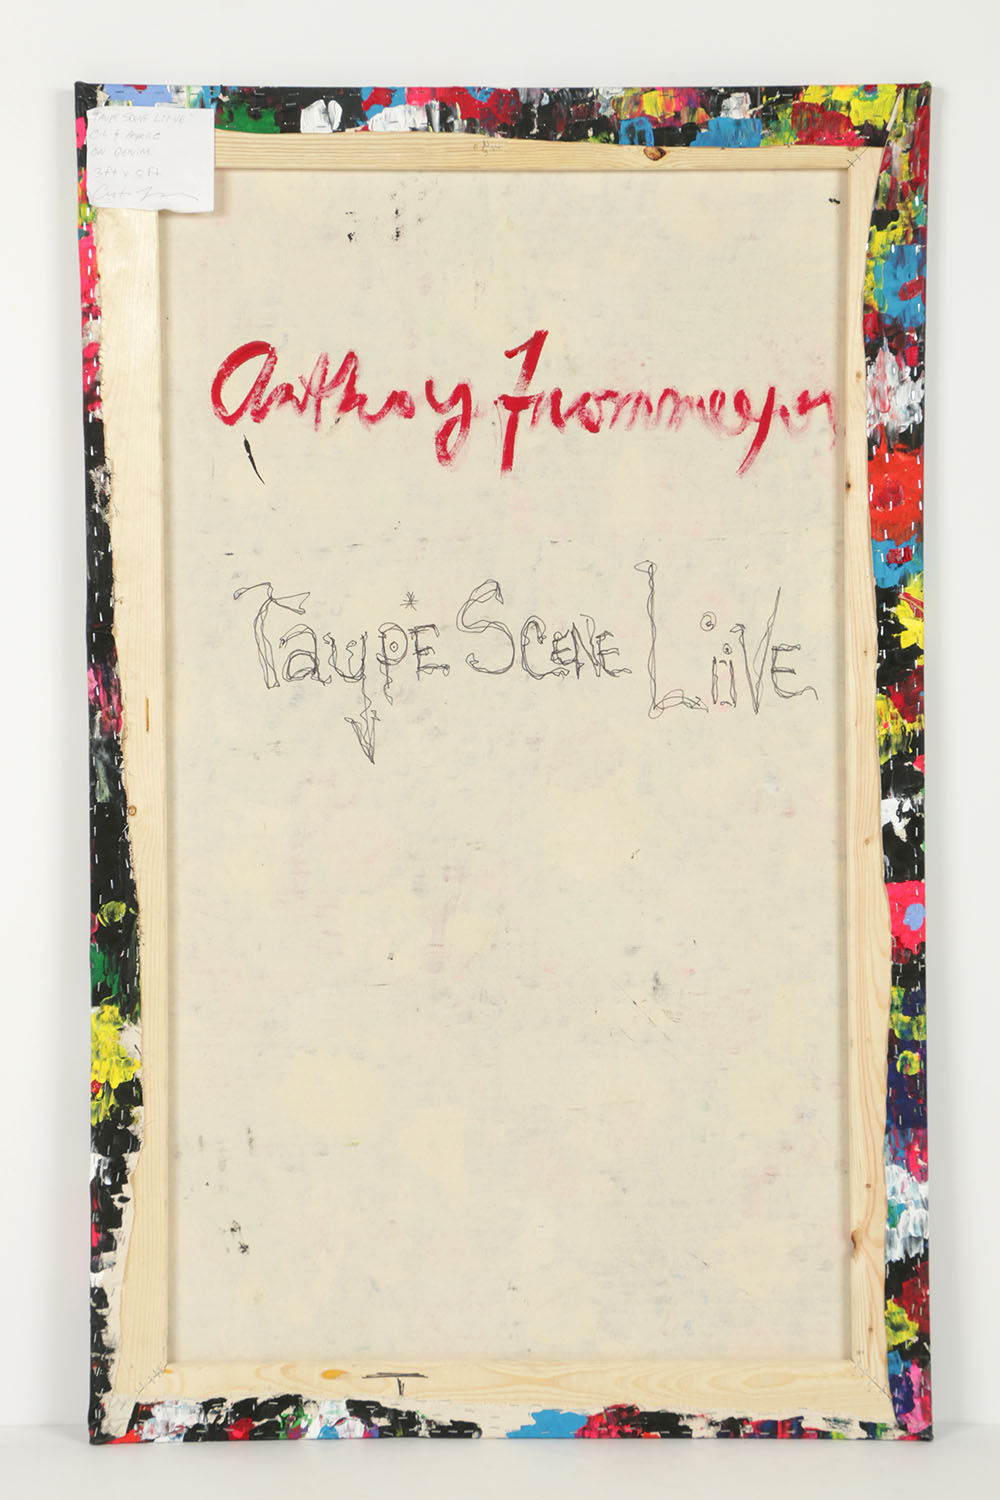 "TAUPE SCENE LIIVE"
OIL & Acrylic
ON DENIM
3ft x 5ft
Anthony Frommeyer
TauPE SCENE LiiVE
T